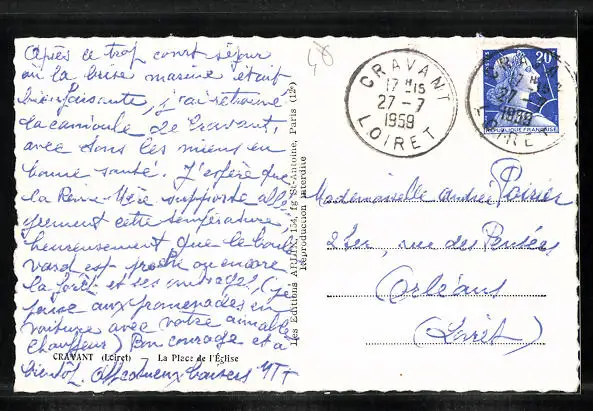 Après ce trop court séjour
où la brise marine était
bienfaisante, j'ai retrouvé
la canicule de Cravant,
avec dans les miens en
bonne santé. J'espère que
la Reine-Mère supporte allé
grement cette température,
heureusement que le boul
vard est proche ou encore
la forêt et ses ombrages (je
pense aux promenades en
voiture avec votre aimable
chauffeur) Bon courage et à
bientôt. Affectueux baisers
CRAVANT (Loiret) La Place de l'Église
Les Editions ARLIX, 154, fg St-Antoine, Paris (12e)
Reproduction interdite
48
CRAVANT
17 H 15
27 - 7
1959
LOIRET
20F
REPUBLIQUE FRANÇAISE
CRAVANT
27 - 7
1959
LOIRET
Mademoiselle Andrée Poirier
rue des Pensées
Orléans
(Loiret)